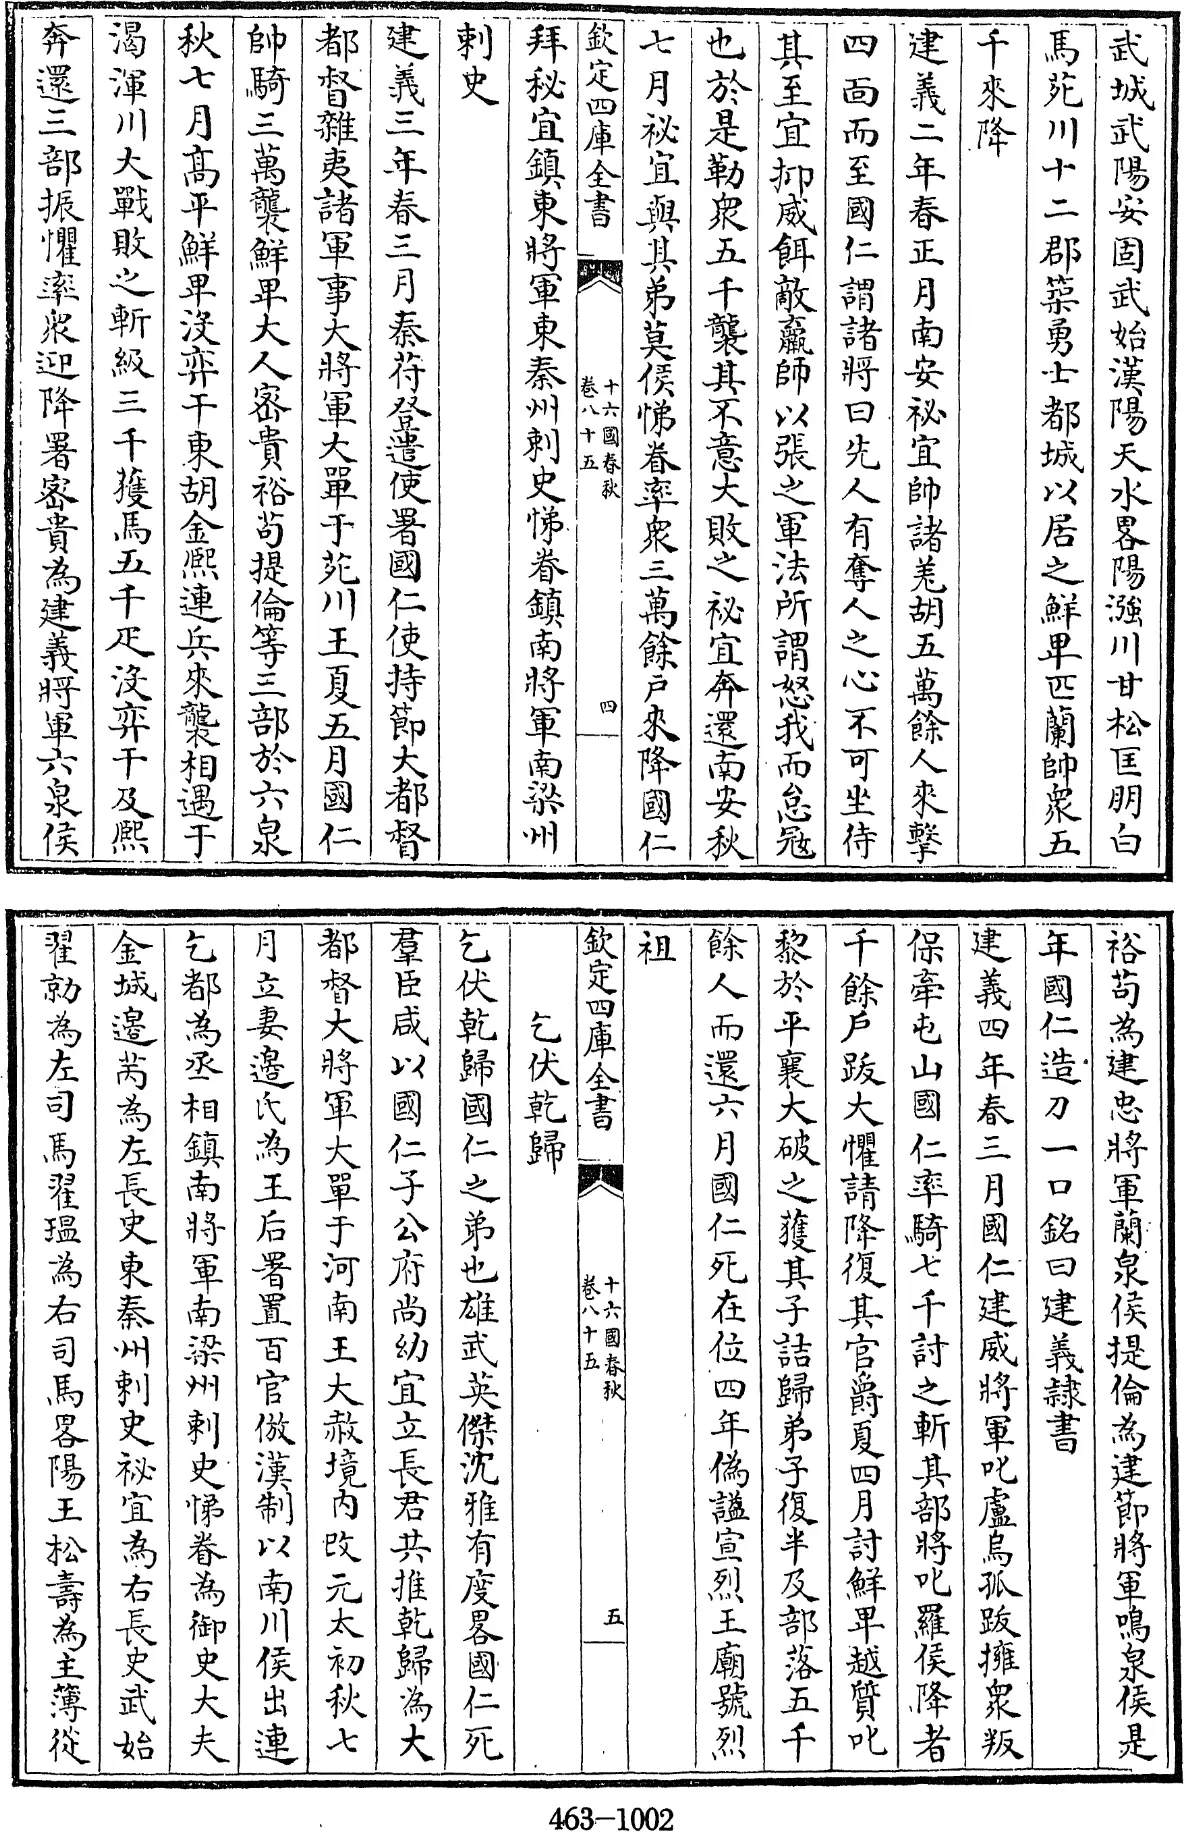 武城武陽安固武始漢陽天水畧陽漒川甘松匡朋白
馬苑川十二郡築勇士都城以居之鮮卑匹蘭帥衆五
千來降
建義二年春正月南安祕宜帥諸羌胡五萬餘人來擊
四面而至國仁謂諸將曰先人有奪人之心不可坐待
其至宜抑威餌敵羸師以張之軍法所謂怒我而怠冦
也於是勒衆五千襲其不意大敗之祕宜奔還南安秋
七月祕宜與其弟莫侯悌眷率衆三萬餘戶來降國仁
欽定四庫全書
十六國春秋
卷八十五
四
拜秘宜鎮東將軍東秦州刺史悌眷鎮南將軍南梁州
刺史
建義三年春三月秦苻登遣使署國仁使持節大都督
都督雜夷諸軍事大將軍大單于苑川王夏五月國仁
帥騎三萬襲鮮卑大人密貴裕茍提倫等三部於六泉
秋七月高平鮮卑没弈干東胡金熈連兵來襲相遇于
渴渾川大戰敗之斬級三千獲馬五千疋没弈干及熈
奔還三部振懼率衆迎降署密貴為建義將軍六泉侯
裕茍為建忠將軍蘭泉侯提倫為建節將軍鳴泉侯是
年國仁造刀一口銘曰建義隷書
建義四年春三月國仁建威將軍叱盧烏孤跋擁衆叛
保牽屯山國仁率騎七千討之斬其部將叱羅侯降者
千餘戶跋大懼請降復其官爵夏四月討鮮卑越質叱
黎於平襄大破之獲其子詰歸弟子復半及部落五千
餘人而還六月國仁死在位四年偽諡宣烈王廟號烈
祖
欽定四庫全書
十六國春秋
卷八十五
五
乞伏乾歸
乞伏乾歸國仁之弟也雄武英傑沈雅有度畧國仁死
羣臣咸以國仁子公府尚幼宜立長君共推乾歸為大
都督大將軍大單于河南王大赦境内改元太初秋七
月立妻邉氏為王后署置百官倣漢制以南川侯出連
乞都為丞相鎮南將軍南梁州刺史悌眷為御史大夫
金城邉芮為左長史東秦州刺史祕宜為右長史武始
翟勍為左司馬翟瑥為右司馬畧陽王松壽為主簿從
463-1002